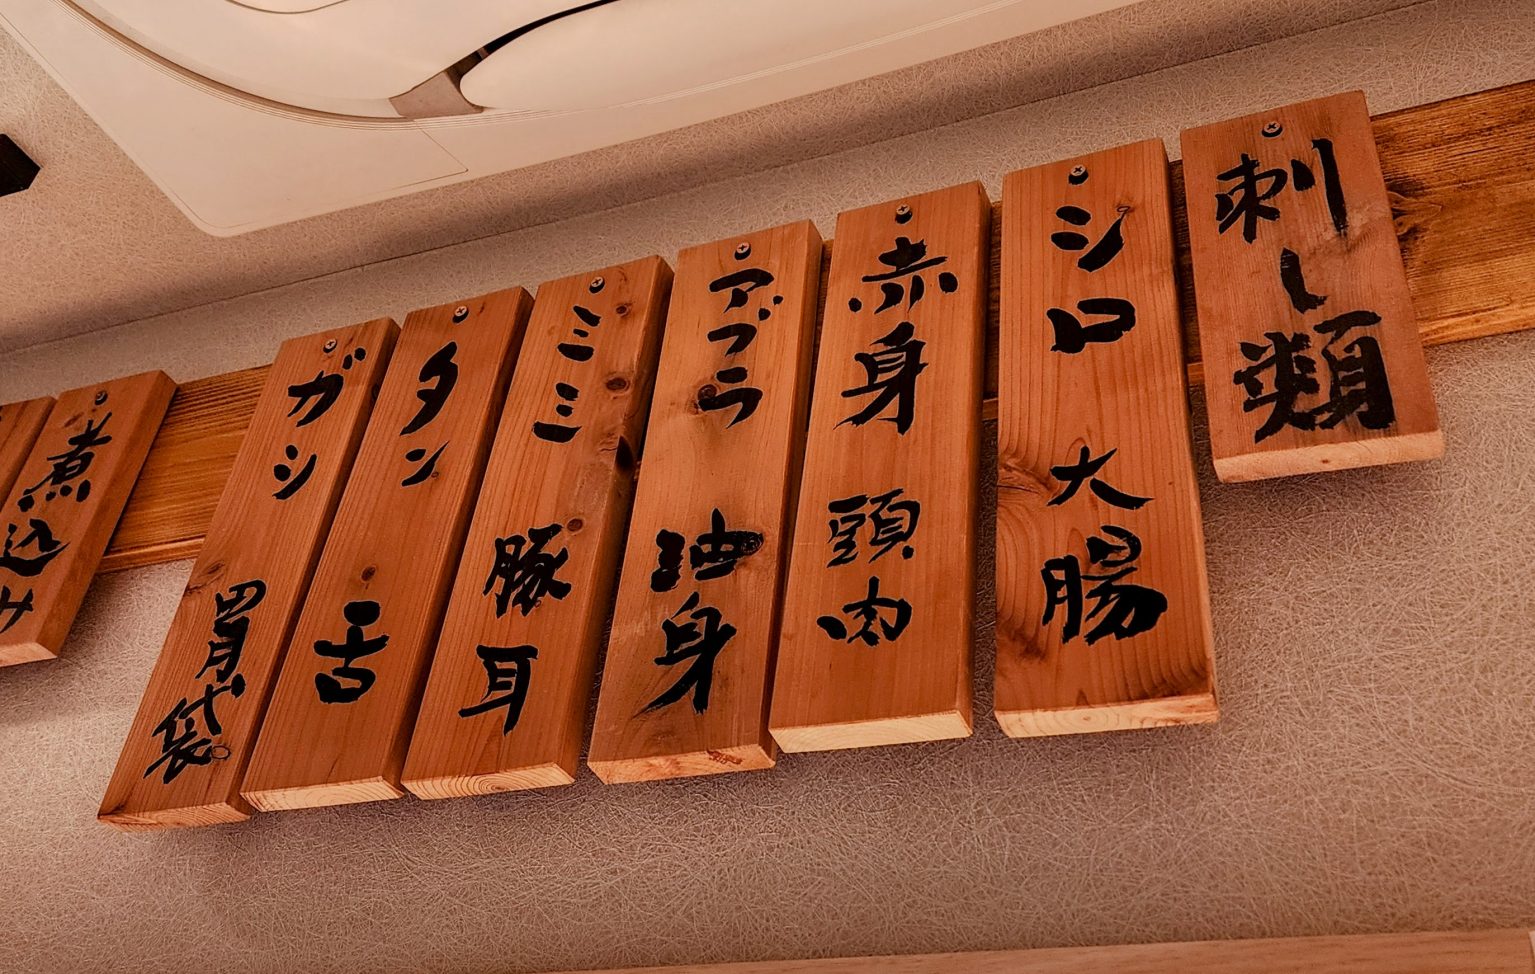 刺し類
シロ 大腸
赤身 頭肉
アブラ 油身
ミミ 豚耳
タン 舌
ガシ 胃袋
煮込み